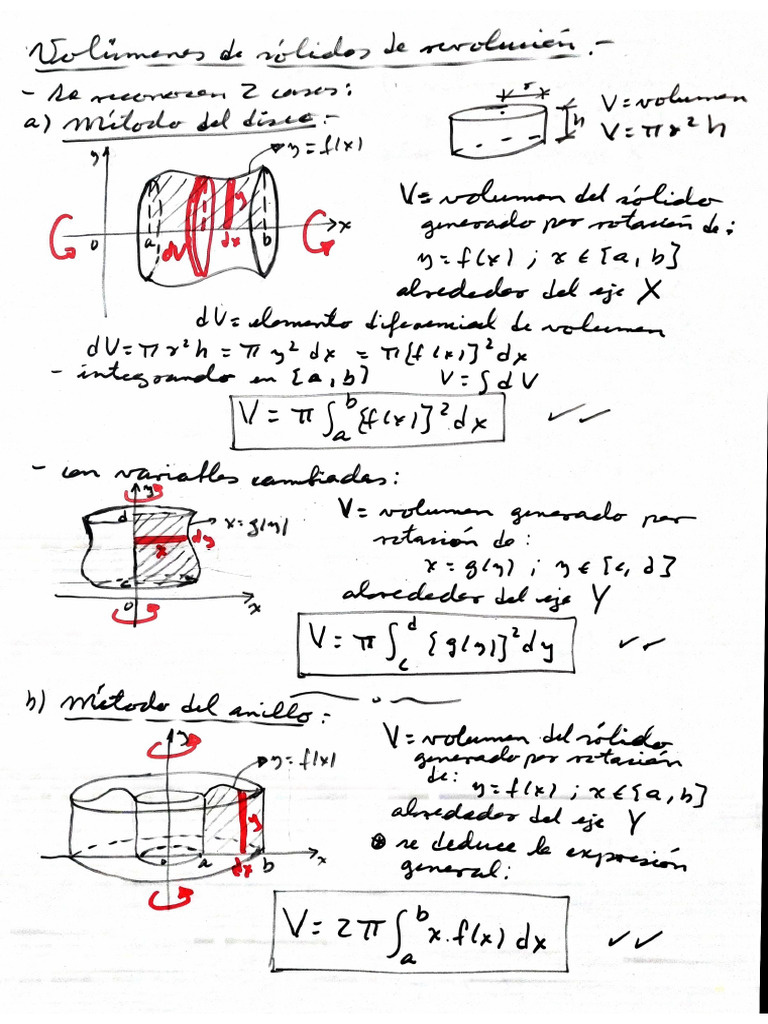 Volúmenes de sólidos de revolución.-
- Se reconocen 2 casos:
a) Método del disco.-
r
h
V = volumen
V = π r² h
y
y = f(x)
y
x
0
a
dV
dx
b
V = volumen del sólido
generado por rotación de:
y = f(x) ; x ∈ [a, b]
alrededor del eje X
dV = elemento diferencial de volumen
dV = π r² h = π y² dx = π [f(x)]² dx
- integrando en [a, b] V = ∫ dV
V = π ∫ₐᵇ [f(x)]² dx ✓✓
- con variables cambiadas:
y
d
x = g(y)
dy
x
c
0
x
V = volumen generado por
rotación de:
x = g(y) ; y ∈ [c, d]
alrededor del eje Y
V = π ∫_c^d [g(y)]² dy ✓✓
b) Método del anillo.-
y
y = f(x)
y
0
a
dx
b
x
V = volumen del sólido
generado por rotación
de:
y = f(x) ; x ∈ [a, b]
alrededor del eje Y
se deduce la expresión
general:
V = 2π ∫ₐᵇ x.f(x) dx ✓✓